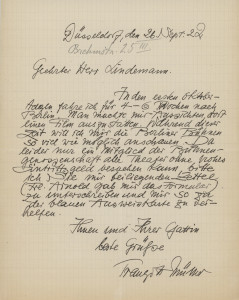 Düsseldorf, den 26. Sept. 22
Brehmstr. 25 III
Geehrter Herr Lindemann.
In den ersten Oktober-
tagen fahre ich für 4–6 Wochen nach
Berlin. Man machte mir Aussichten, dort
einen Film auszustatten. Während dieser
Zeit will ich mir die Berliner Bühnen
so viel wie möglich anschauen. Da
leider nur ein Mitglied der Bühnen-
genossenschaft alle Theater ohne hohes
Eintrittsgeld besehen kann, bitte
ich Sie mir beiliegenden Zettel
(Fre Arnold gab mir das Formular)
zu unterschreiben und mir so zu
der blauen Ausweiskarte zu ver-
helfen.
Ihnen und Ihrer Gattin
beste Grüße